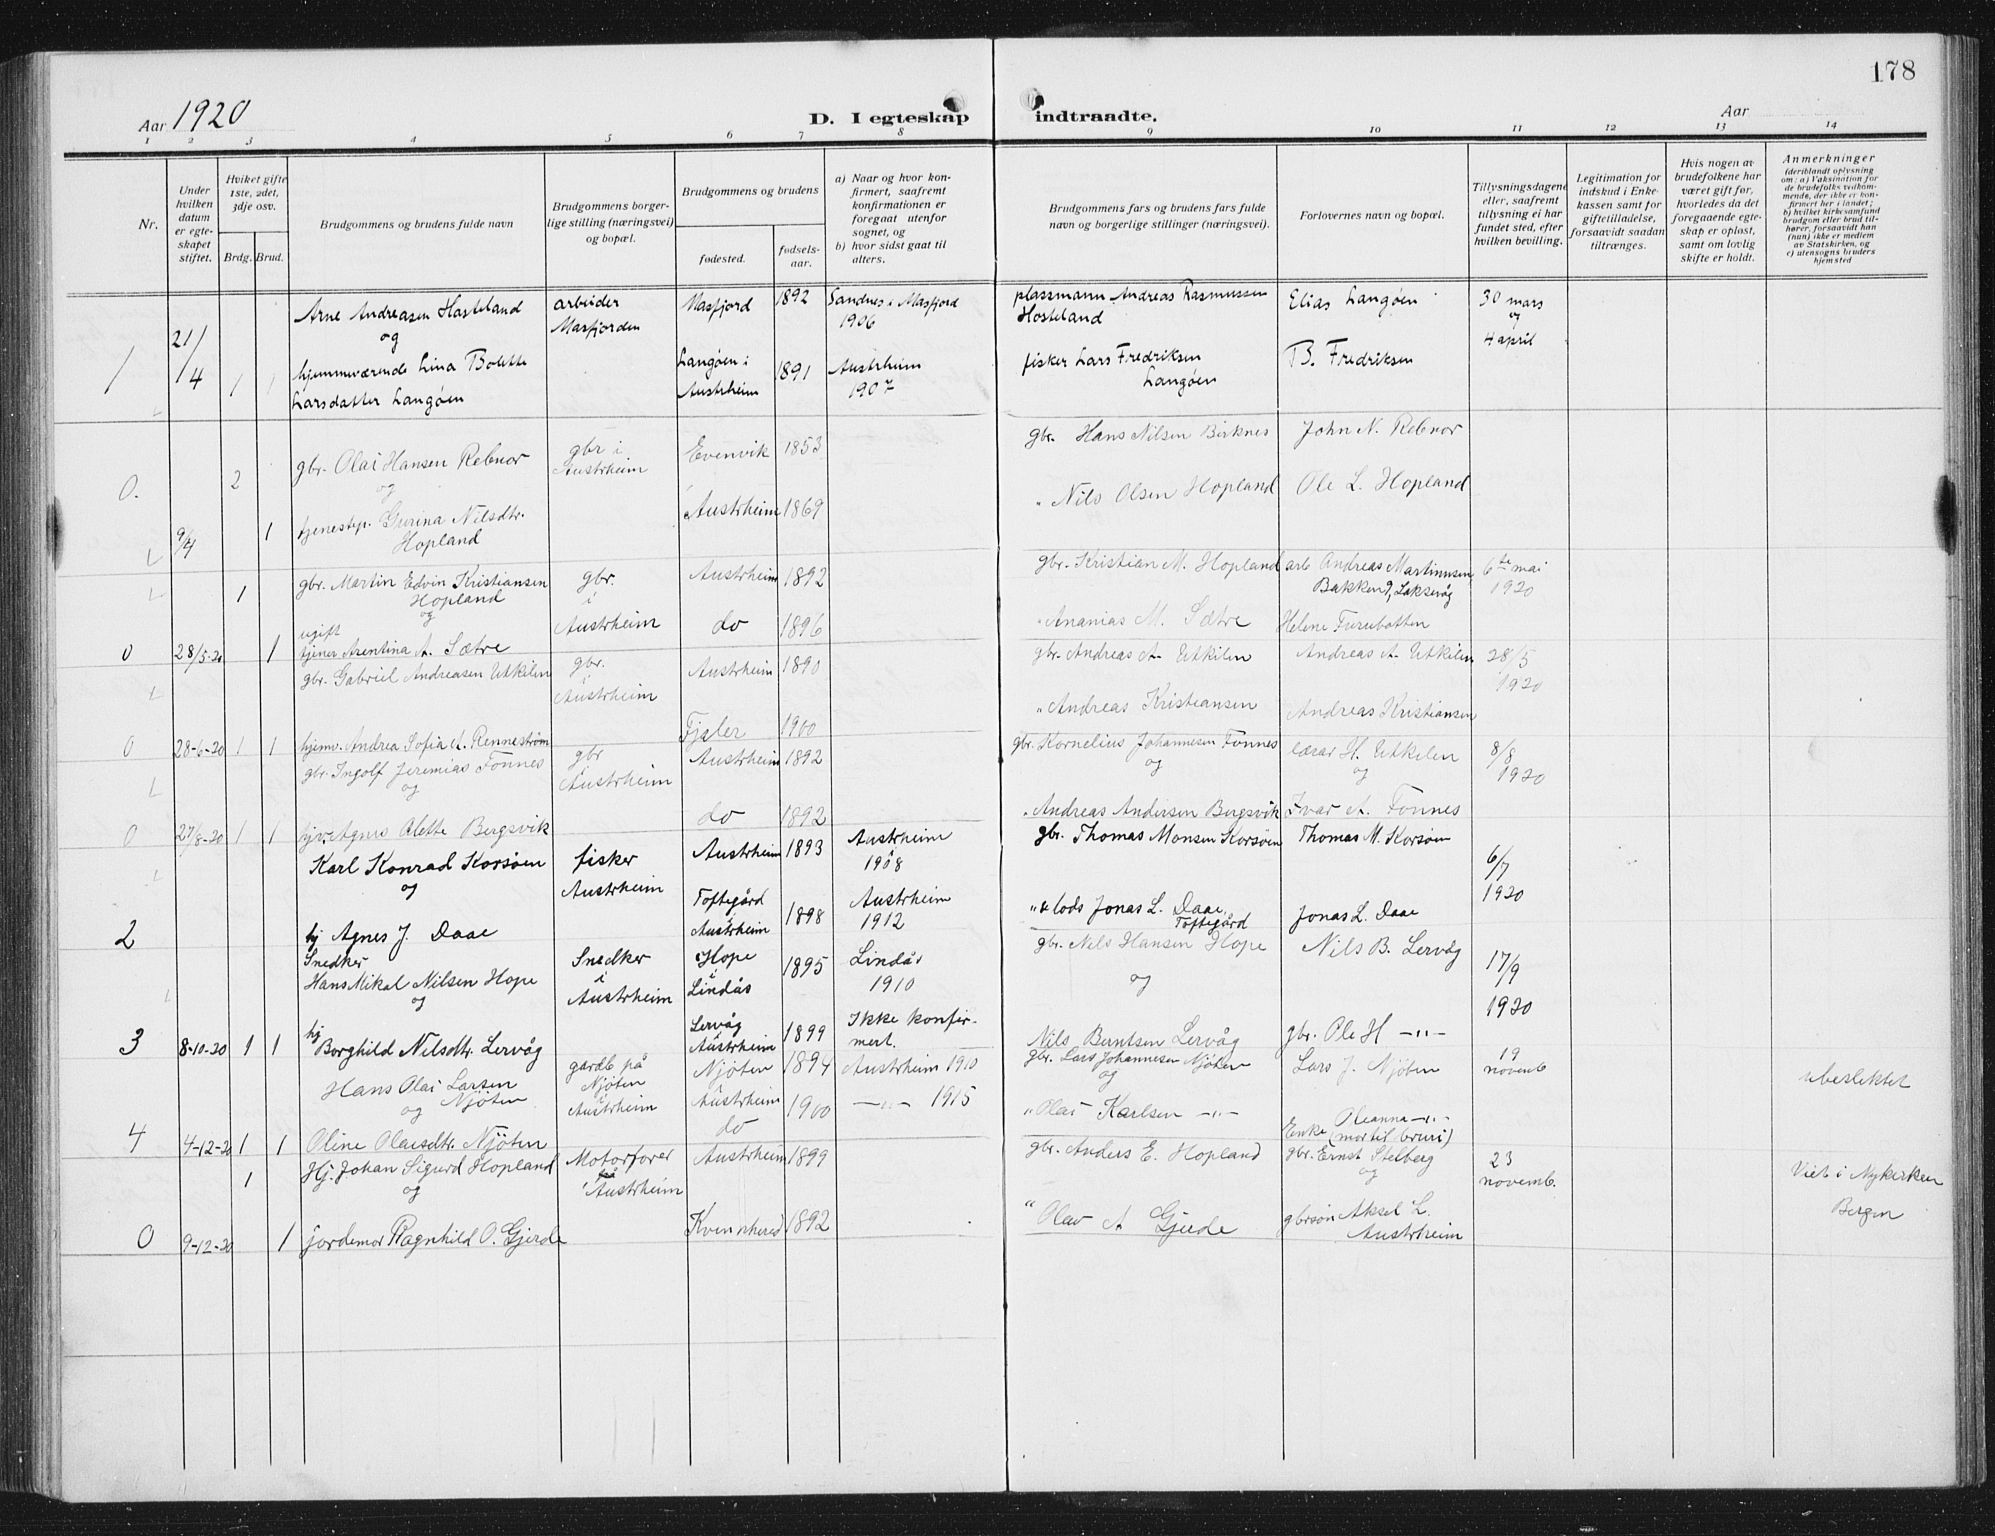 178
Aar 1920
D. I egteskap indtraadte.
Aar
1 2 3 4 5 6 7 8 9 10 11 12 13 14
Nr.
Under hvilken datum er egteskapet stiftet.
Hviket gifte 1ste, 2det, 3dje osv.
Brdg. Brud.
Brudgommens og brudens fulde navn
Brudgommens borgerlige stilling (næringsvei) og bopæl.
Brudgommens og brudens
fødested.
fødsels-aar.
a) Naar og hvor konfirmert, saafremt konfirmationen er foregaat utenfor sognet, og
b) hvor sidst gaat til alters.
Brudgommens fars og brudens fars fulde navn og borgerlige stillinger (næringsvei).
Forlovernes navn og bopæl.
Tillysningsdagene eller, saafremt tillysning ei har fundet sted, efter hvilken bevilling.
Legitimation for indskud i Enkekassen samt for giftetilladelse, forsaavidt saadan tiltrænges.
Hvis nogen av brudefolkene har været gift før, hvorledes da det foregaaende egteskap er opløst, samt om lovlig skifte er holdt.
Anmerkninger (deriblandt oplysning om: a) Vaksination for de brudefolks vedkommende, der ikke er konfirmert her i landet; b) hvilket kirkesamfund brudgom eller brud tilhører, forsaavidt han (hun) ikke er medlem av Statskirken, og c) utensogns bruders hjemsted
Arne Andreasen Hosteland arbeider Masfjord 1892 Sandnes i Masfjord plassmann Andreas Rasmussen Elias Langøen 30 mars
og Masfjorden 1906 Hosteland og
1 21/4 1 1 hjemmeværende Lina Bolette Langøen i 1891 Austrheim fisker Lars Fredriksen B. Fredriksen 4 april
Larsdatter Langøen Austrheim 1907 Langøen
gbr. Olai Hansen Rebnor gbr i Evenvik 1853 gbr. Hans Nilsen Birknes John N. Rebnor
0. 2 og Austrheim
9/4 1 tjenestep. Gurina Nilsdtr. Austrheim 1869 " Nils Olsen Hopland Ole L. Hopland
Hopland
1 gbr. Martin Edvin Kristiansen gbr. Austrheim 1892 gbr. Kristian M. Hopland arb Andreas Martinusen 6te mai
Hopland i Bakken, Laksevåg 1920
og Austrheim
ugift
0 28/5-20 1 tjener Arentina A. Sætre do 1896 " Ananias M. Sætre Helene Furubotten
gbr. Gabriel Andreasen Utkilen gbr. Austrheim 1890 gbr. Andreas A. Utkilen Andreas A. Utkilen 28/5
i Austrheim 1920
0 28-6-20 1 1 hjemv. Andrea Sofia A. Rennestrøm Fjaler 1900 " Andreas Kristiansen Andreas Kristiansen
gbr. Ingolf Jeremias Fonnes gbr Austrheim 1892 gbr. Kornelius Johannesen Fonnes lærar H. Utkilen 8/8
og i Austrheim og og 1920
0 27/8-20 1 1 hjv. Agnes Olette Bergsvik do 1892 " Andreas Andersen Bergsvik Ivar A. Fonnes
Karl Konrad Korsøen fisker Austrheim 1893 Austrheim gbr. Thomas Monsen Korsøen Thomas M. Korsøen 6/7
og Austrheim 1908 1920
2 hj Agnes J. Daae Toftegård 1898 Austrheim " & lods Jonas L. Daae, Jonas L. Daae
Austrheim 1912 Toftegård
Snedker
Hans Mikal Nilsen Hope Snedker Hope 1895 Lindås gbr. Nils Hansen Hope Nils B. Lervåg 17/9
og i Austrheim i Lindås 1910 og 1920
3 8-10-20 1 1 hj Borghild Nilsdtr. Lervåg Lervåg 1899 Ikke konfir- Nils Berntsen Lervåg gbr. Ole H —"—
Austrheim mert.
Hans Olai Larsen gardb. på Njøten 1894 Austrheim 1910 gbr. Lars Johannesen Njøten Lars J. Njøten 19 ubeslektet
og Njøten Njøten i Austrheim og novemb
Austrheim
4 4-12-20 1 1 Oline Olaisdtr. Njøten do 1900 —"— 1915 " Olai Karlsen —"— Enke Oleanna —"—
(mor til bruri)
1 Hj. Johan Sigurd Hopland Motorfører Austrheim 1899 gbr. Anders E. Hopland gbr. Ernst Stelberg 23 Viet i Nykirken
og i Austrheim og novemb. Bergen
0 9-12-20 1 jordemor Ragnhild O. Gjerde Kvinnherad 1892 " Olav A Gjerde gbrsøn Aksel L.
Austrheim